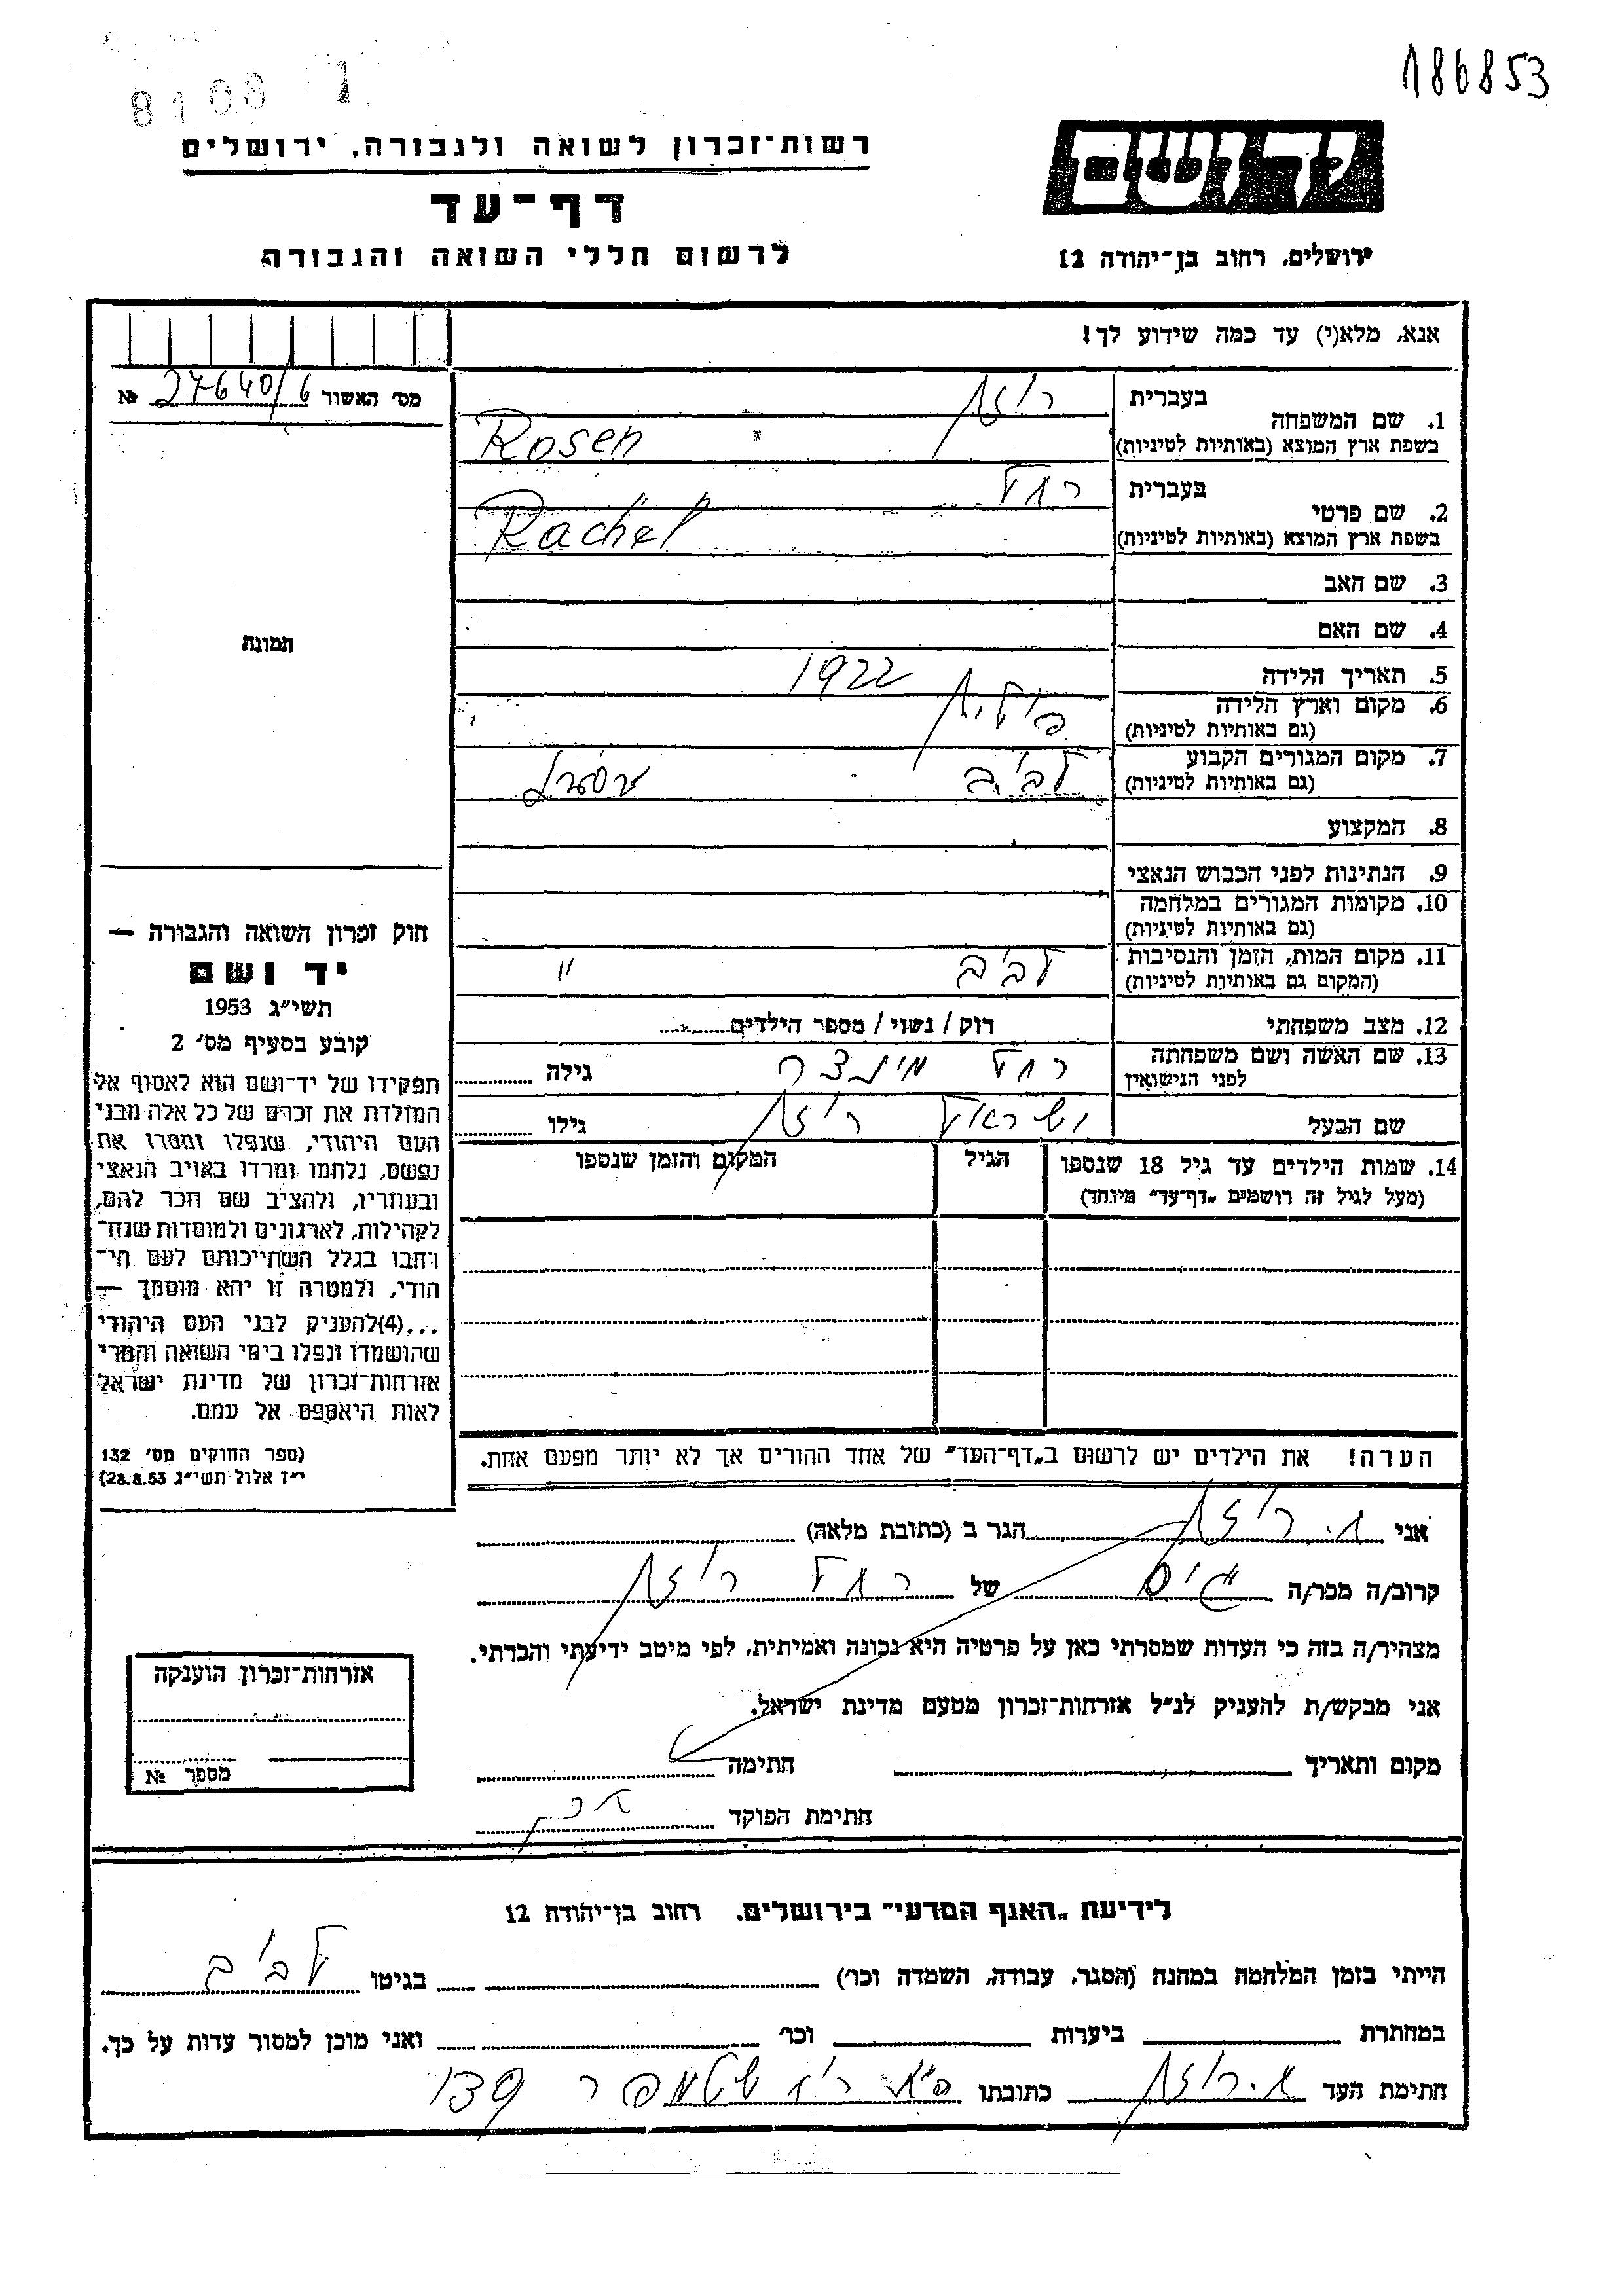 186853
8108 1
רשות־זכרון לשואה ולגבורה, ירושלים
ידושם
דף־עד
לרשום חללי השואה והגבורה
ירושלים, רחוב בן־יהודה 12
אנא, מלא(י) עד כמה שידוע לך!
מס׳ האשור 27640/6 №
1. שם המשפחה
בעברית רוזן
בשפת ארץ המוצא (באותיות לטיניות) Rosen
2. שם פרטי
בעברית רחל
בשפת ארץ המוצא (באותיות לטיניות) Rachel
3. שם האב
4. שם האם
תמונה
5. תאריך הלידה 1922
6. מקום וארץ הלידה פולין
(גם באותיות לטיניות)
7. מקום המגורים הקבוע לבוב
(גם באותיות לטיניות)
8. המקצוע
9. הנתינות לפני הכבוש הנאצי
10. מקומות המגורים במלחמה
(גם באותיות לטיניות)
11. מקום המות, הזמן והנסיבות לבוב "
(המקום גם באותיות לטיניות)
12. מצב משפחתי רוק / נשוי / מספר הילדים
13. שם האשה ושם משפחתה רחל מינצר גילה
לפני הנישואין
שם הבעל ישראל רוזן גילו
14. שמות הילדים עד גיל 18 שנספו הגיל המקום והזמן שנספו
(מעל לגיל זה רושמים „דף־עד" מיוחד)
הערה! את הילדים יש לרשום ב„דף־העד" של אחד ההורים אך לא יותר מפעם אחת.
חוק זכרון השואה והגבורה —
יד ושם
תשי״ג 1953
קובע בסעיף מס׳ 2
תפקידו של יד־ושם הוא לאסוף אל
המולדת את זכרם של כל אלה מבני
העם היהודי, שנפלו ומסרו את
נפשם, נלחמו ומרדו באויב הנאצי
ובעוזריו, ולהציב שם וזכר להם,
לקהילות, לארגונים ולמוסדות שנח־
רבו בגלל השתייכותם לעם הי־
הודי, ולמטרה זו יהא מוסמך —
...(4)להעניק לבני העם היהודי
שהושמדו ונפלו בימי השואה והמרי
אזרחות־זכרון של מדינת ישראל
לאות היאספם אל עמם.
(ספר החוקים מס׳ 132
י״ז אלול תשי״ג 28.8.53)
אני א. רוזן הגר ב (כתובת מלאה)
קרוב/ה מכר/ה גיס של רחל רוזן
מצהיר/ה בזה כי העדות שמסרתי כאן על פרטיה היא נכונה ואמיתית, לפי מיטב ידיעתי והכרתי.
אני מבקש/ת להעניק לנ״ל אזרחות־זכרון מטעם מדינת ישראל.
מקום ותאריך חתימה
חתימת הפוקד
אזרחות־זכרון הוענקה
מספר №
לידיעת „האגף המדעי" בירושלים. רחוב בן־יהודה 12
הייתי בזמן המלחמה במחנה (הסגר, עבודה, השמדה וכו׳) בגיטו לבוב
במחתרת ביערות וכו׳ ואני מוכן למסור עדות על כך.
חתימת העד א. רוזן כתובתו 139